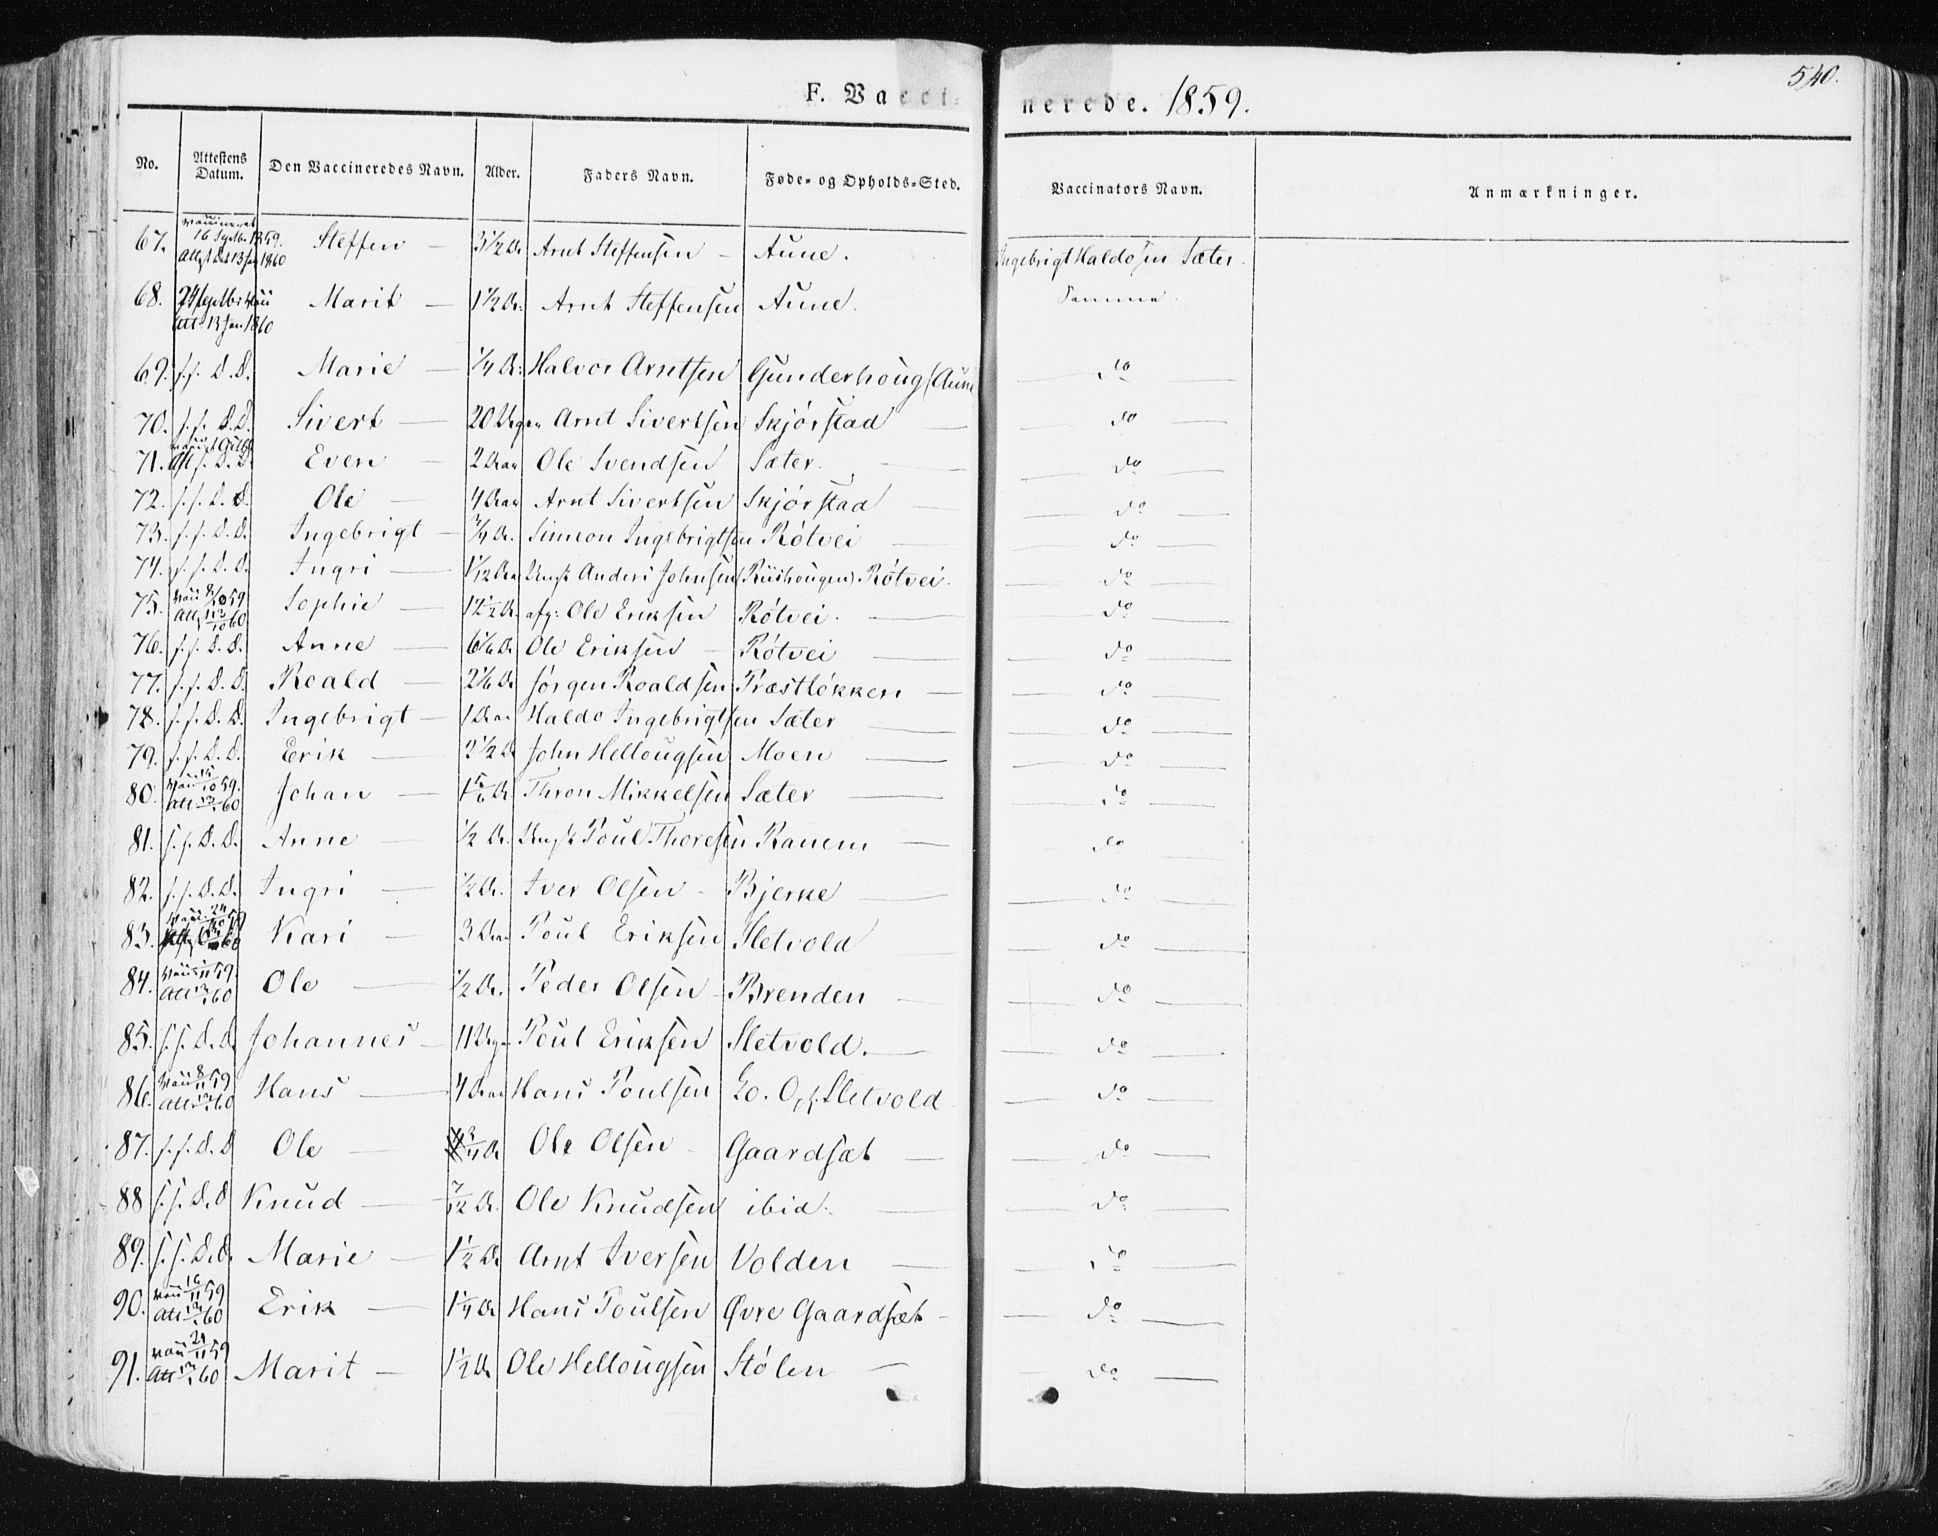 540.
F. Vacci-nerede. 1859.
No. Attestens Datum. Den Vaccineredes Navn. Alder. Faders Navn. Føde- og Opholds-Sted. Vaccinators Navn. Anmærkninger.
67. 16 Septbr 1859. Attest 13 Jan 1860 Steffen — 3 1/2 Ar Arnt Steffensen — Aune. Ingebrigt Haldosen Sæter.
68. 24 Septbr Att 13 Jan 1860 Marit — 1 1/2 Ar. Arnt Steffensen Aune. Samme.
69. s. s. D. D. Marie — 1/4 Ar. Halvor Arntsen Gunderhoug (Aune — do —
70. s. s. D. D. Sivert — 20 Uger Arnt Sivertsen Skjørstad — do —
71. s. D. D. Even — 2 Aar Ole Svendsen Sæter. — do —
72. s. s. D. D. Ole — 4 Aar Arnt Sivertsen Skjørstad — do —
73. s. s. D. D. Ingebrigt — 3/4 Ar. Simeon Ingebrigtsen Røtvei — do —
74. s. s. D. D. Ingri — 1/12 Aar Ungk Anders Johnsen (Riishougen) Røtvei. — do —
75. 8/10 59 Att 13/1 60 Sophie — 1 1/2 Ar. afg: Ole Eriksen Røtvei. — do —
76. s. s. D. D. Anne — 6 1/6 Ar Ole Eriksen — Røtvei — do —
77. s. s. D. D. Roald — 2 1/6 Ar Jørgen Roaldsen Præstløkken — do —
78. s. s. D. D. Ingebrigt — 1 Aar Haldo Ingebrigtsen Sæter — do —
79. s. s. D. D. Erik — 2 1/2 Ar John Hellougsen Moen — do —
80. 15/10 59. Att 13/1 60 Johan — 1 5/6 Ar Thron Mikkelsen Sæter — do —
81. s. s. D. D. Anne — 1/2 Ar. Ungk Poul Thoresen Ranem — do —
82. s. s. D. D. Ingri — 1/2 Ar. Iver Olsen — Bjerke — do —
83. 60 Kari — 3 Aar Poul Eriksen Sletvold — do —
84. 59. Att 13/1 60 Ole — 1/2 Ar. Peder Olsen — Brenden — do —
85. s. s. D. D. Johannes — 11 Uger Poul Eriksen Sletvold. — do —
86. 8/11 59 Att 13/1 60 Hans — 4 Aar Hans Poulsen Lo. Oph. Sletvold — do —
87. s. s. D. D Ole — 3/4 Ar Ole Olsen — Gaardsæt — do —
88 s. s. D. D Knud — 7/12 Ar. Ole Knudsen ibid. — do —
89. s. s. D. D. Marie — 1 1/2 Ar Arnt Iversen Volden — do —
90. 16/11 59 Att 13/1 60 Erik — 1 1/4 Ar Hans Poulsen Øvre Gaardsæt — do —
91. 24/11 59 Att 13/1 60 Marit — 1 1/2 Ar Ole Hellougsen Stølen — do —